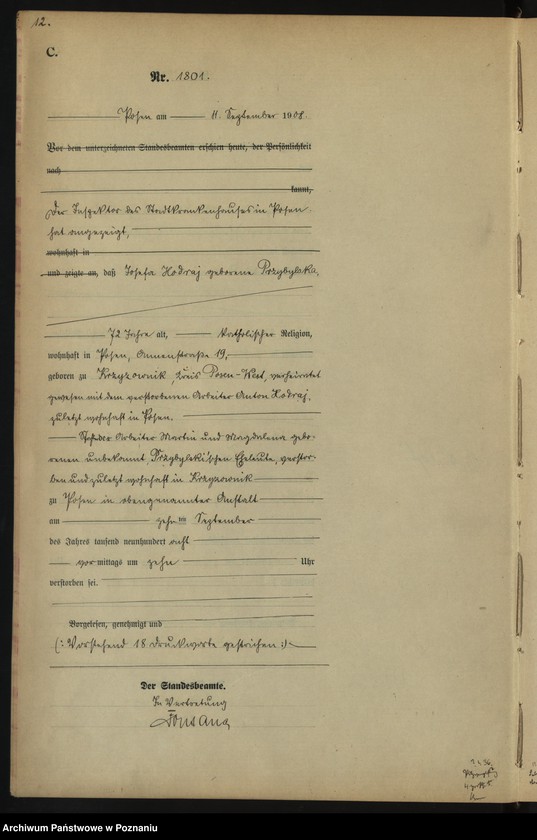 12.
C.
Nr. 1801.
Posen am 11. September 1908.
Vor dem unterzeichneten Standesbeamten erschien heute, der Persönlichkeit
nach
kannt,
Der Inspektor des Stadtkrankenhauses in Posen
hat angezeigt,
wohnhaft in
und zeigte an, daß Josefa Hodraj geborene Przybylska,
72 Jahre alt, katholischer Religion,
wohnhaft in Posen, Annenstraße 19,
geboren zu Krzyzownik, Kreis Posen-West, verheiratet
gewesen mit dem verstorbenen Arbeiter Anton Hodraj,
zuletzt wohnhaft in Posen.
Tochter der Arbeiter Martin und Magdalena gebo-
renen unbekannt, Przybylski'schen Eheleute, verstor-
ben und zuletzt wohnhaft in Krzyzownik
zu Posen in obengenannter Anstalt
am zehnten September
des Jahres tausend neunhundert acht
vormittags um zehn Uhr
verstorben sei.
Vorgelesen, genehmigt und
(: Vorstehend 18 Druckworte gestrichen :)
Der Standesbeamte.
In Vertretung
Archiwum Państwowe w Poznaniu